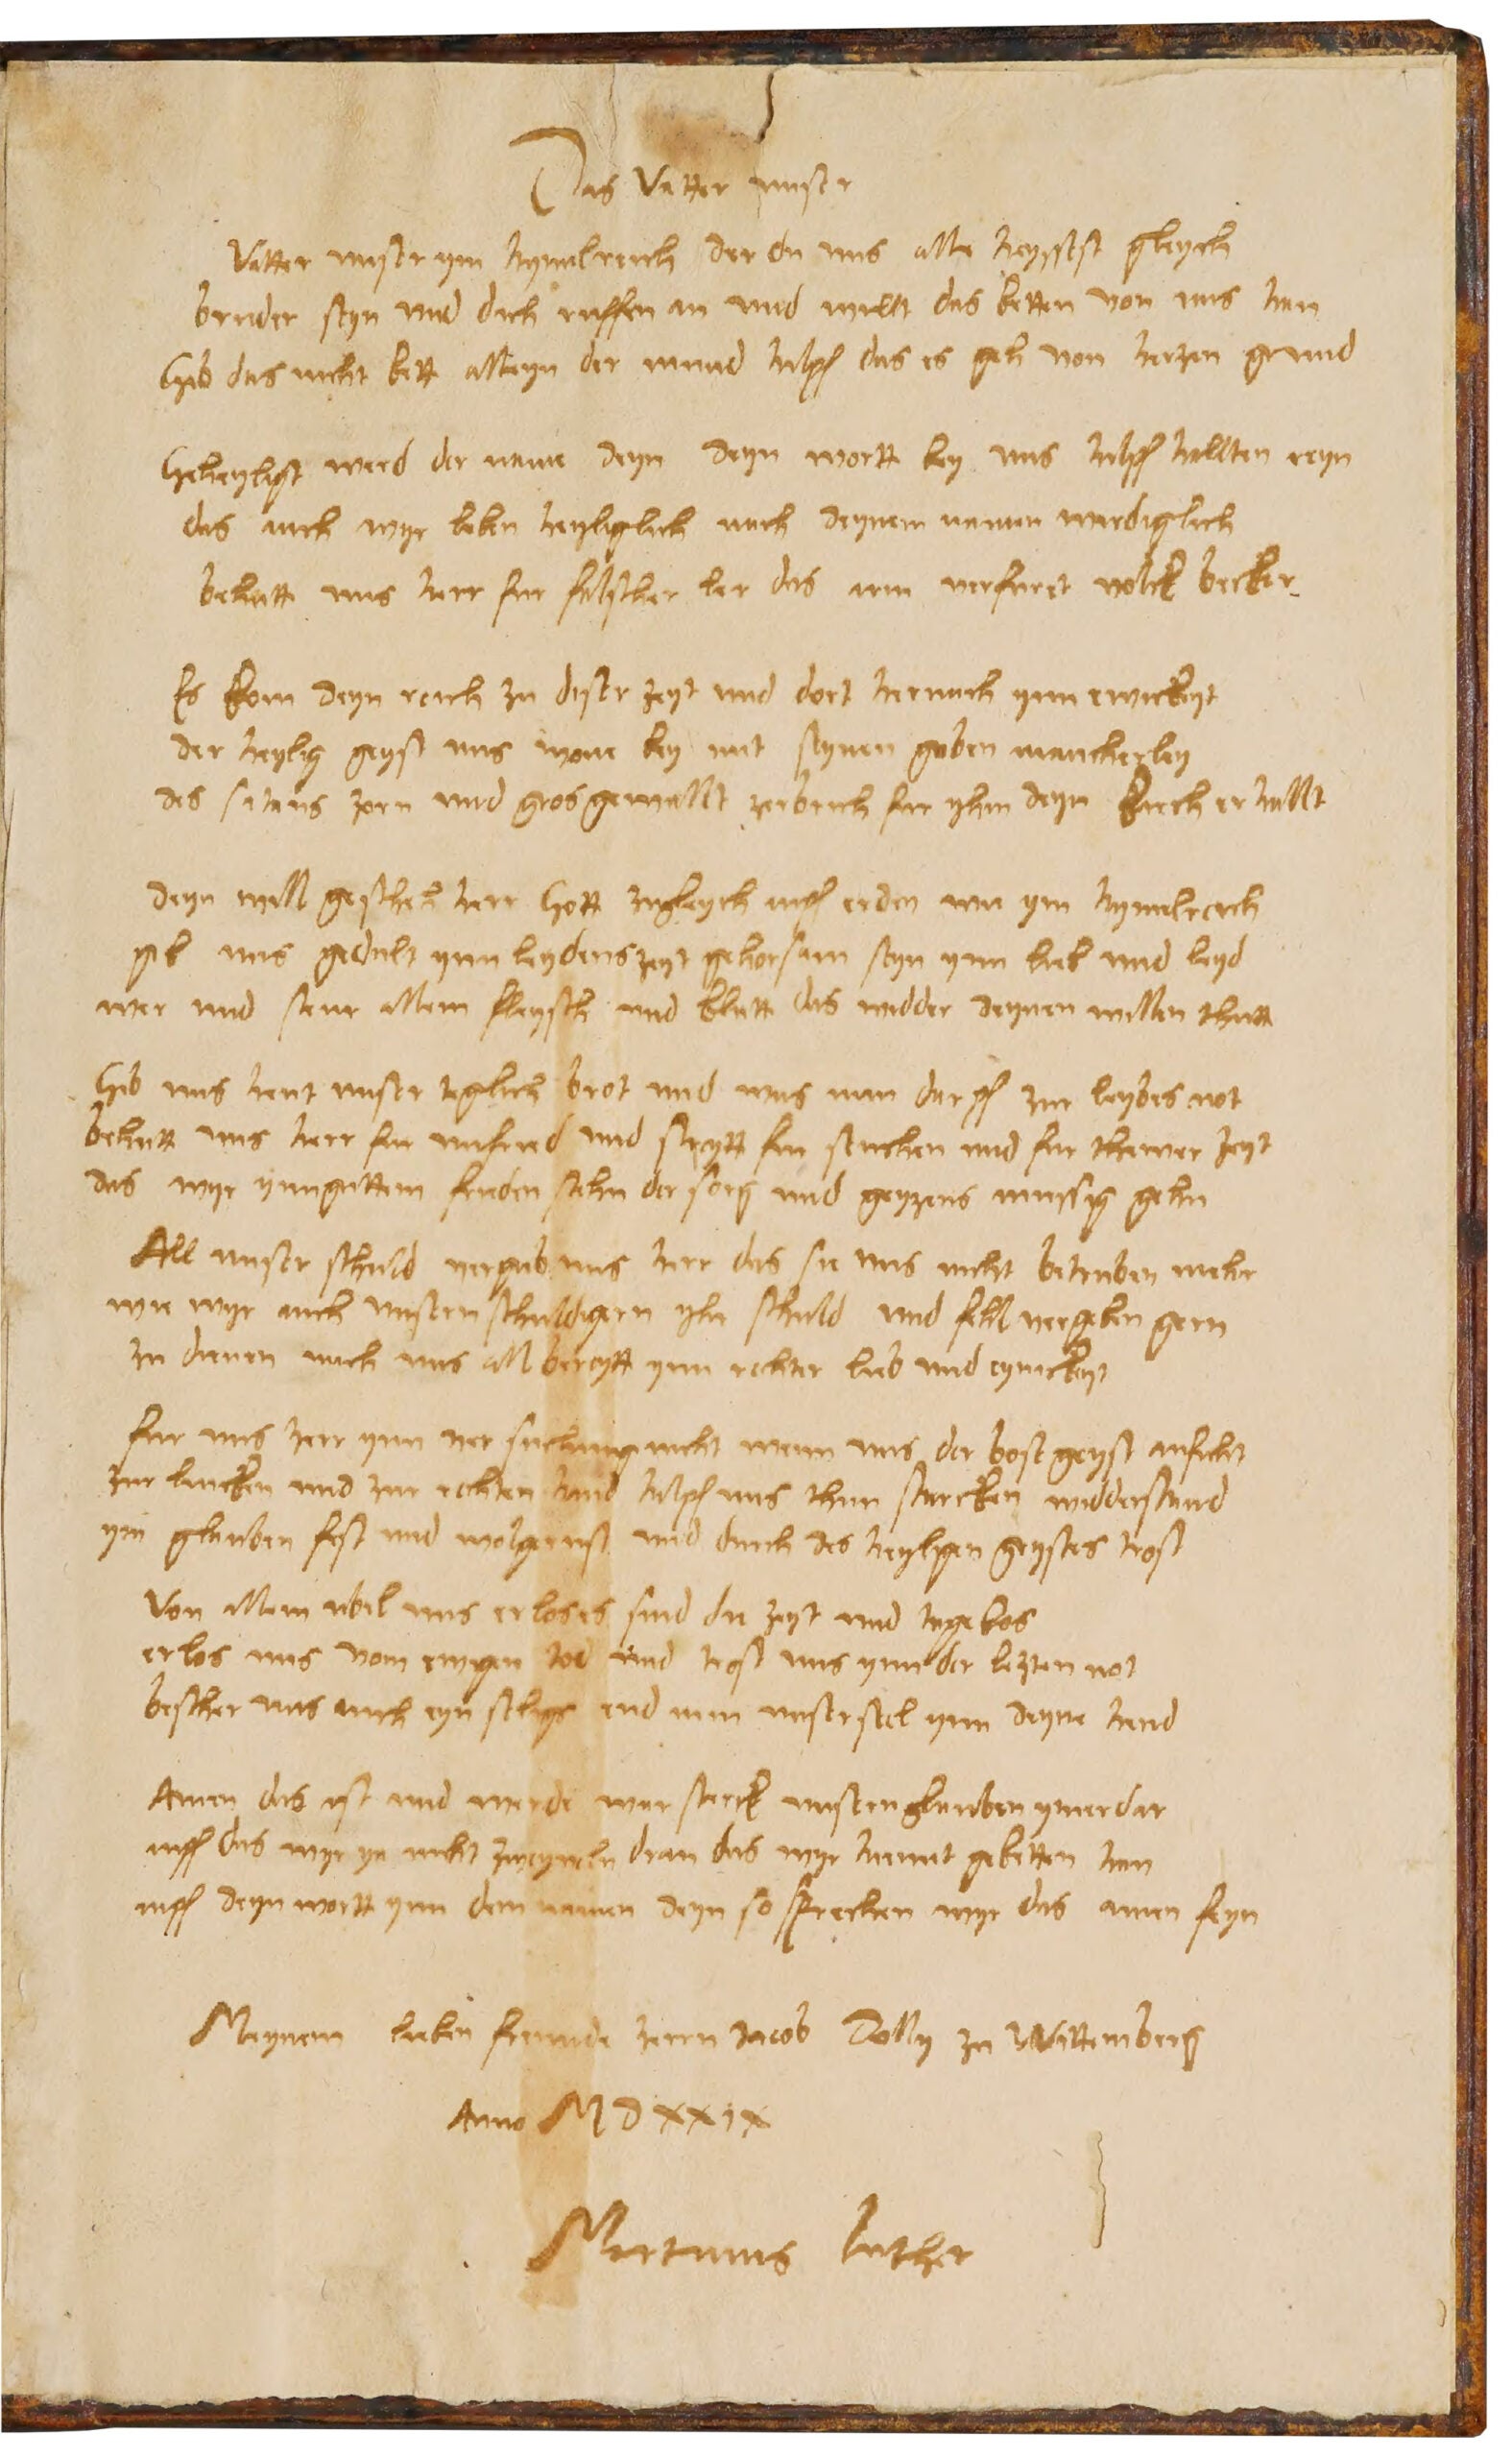 Das Vatter unser
Vatter unser ym hymelreich der du uns alle heyssest gleych
bruder seyn und dich ruffen an und willt das betten von uns han
Gib das nicht bett alleyn der mund hilff das es geh von hertzen grund
Geheyliget werd der name deyn deyn wortt bey uns hilff hallten reyn
das auch wyr leben heyliglich nach deynem namen wirdiglich
behutt uns herr fur falscher ler das arm verfuret volck beker
Es kom deyn reich zu diser zeyt und dort hernach ynn ewickeyt
der heylig geyst uns wone bey mit seynen gaben mancherley
des satans zorn und gros gewallt zerbrich fur yhm deyn kirch erhallt
deyn will gescheh herr Gott zugleych auff erden wie ym hymelreich
gib uns gedult ynn leydens zeyt gehorsam seyn ynn lieb und leyd
wer und steur allem fleysch und blutt das widder deynen willen thutt
Gib uns heut unser teglich brot und was man darff zur leybes not
behutt uns herr fur unfried und streytt fur seuchen und fur thewer zeyt
das wyr ynn guttem frieden stehn der sorg und geyzens mussig gehn
All unser schuld vergib uns herr das sie uns nicht betruben mehr
wie wyr auch unsern schuldigern yhr schuld und fehl vergeben gern
zu dienen mach uns all bereytt ynn rechter lieb und eynickeyt
fur uns herr ynn versuchung nicht wenn uns der bose geyst anficht
zur lincken und zur rechten hand hilff uns thun starcken widderstand
ym glauben fest und wolgerust und durch des heyligen geystes trost
Von allem ubel uns erlos es sind die zeyt und tage bos
erlos uns vom ewigen tod und trost uns ynn der letzten not
bescher uns auch eyn seligs end nim unser seel ynn deyne hend
Amen das ist und werde war sterck unsern glauben ymerdar
auff das wyr ya nicht zweyveln dran das wyr hiemit gebetten han
auff deyn wortt ynn dem namen deyn so sprechen wyr das amen feyn
Meynem lieben freunde herrn Jacob Dolly zu Wittemberg
Anno MDXXIX
Martinus Luther